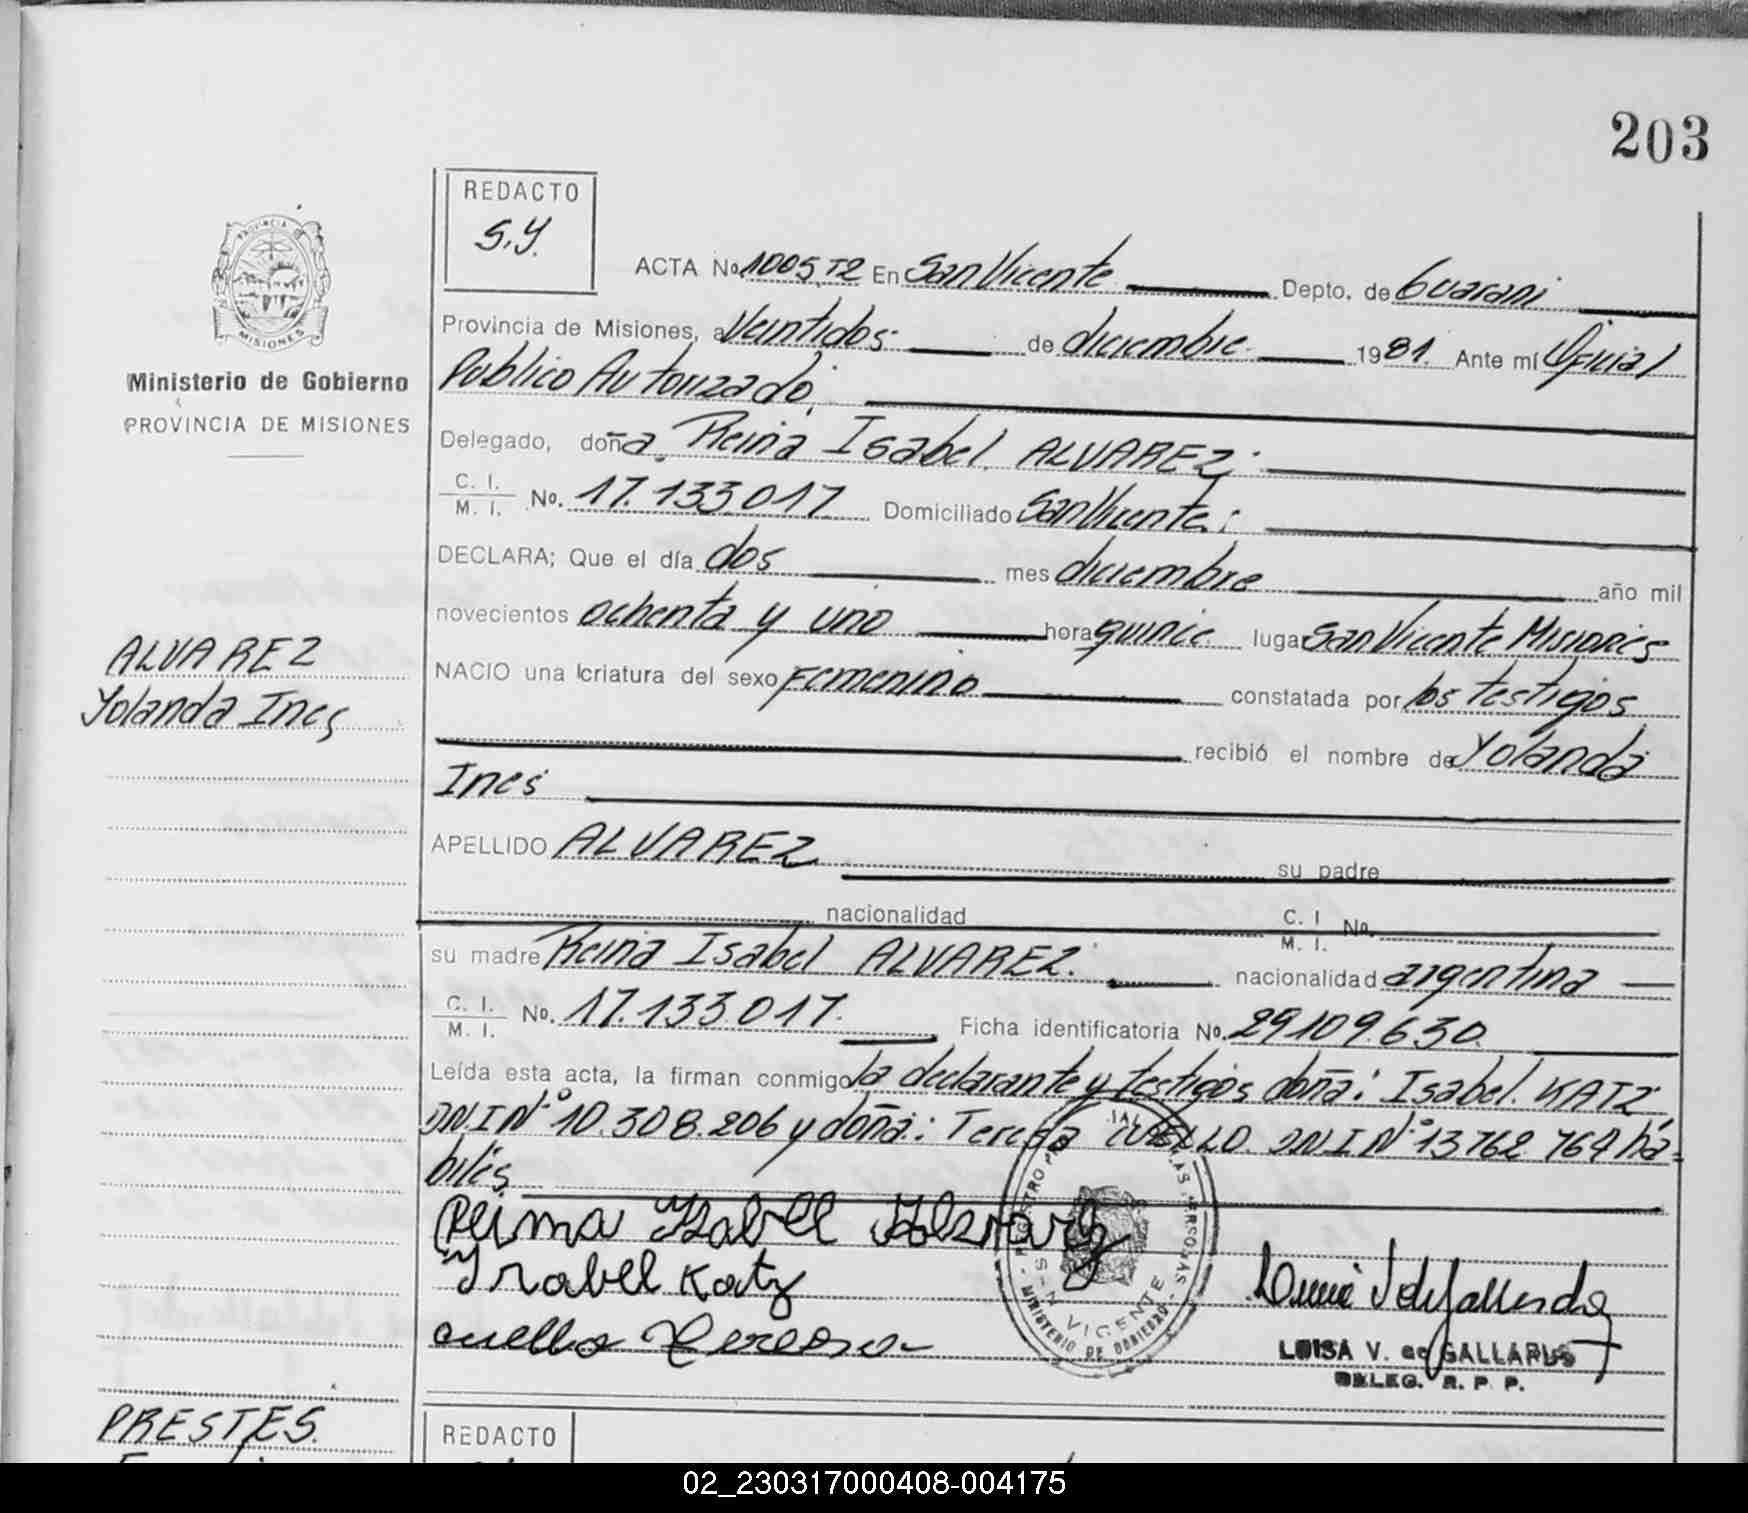 203
REDACTO
S.Y.
ACTA No. 1005 T2 En San Vicente Depto. de Guarani
Provincia de Misiones, a Veintidos de diciembre 1981. Ante mí Oficial
Publico Autorizado,
Delegado, doña Reina Isabel ALVAREZ;
C. I.
M. I. No. 17.133.017 Domiciliado San Vicente;
DECLARA; Que el día dos mes diciembre año mil
novecientos ochenta y uno hora quince lugar San Vicente Misiones
NACIO una criatura del sexo Femenino constatada por los testigos
recibió el nombre de Yolanda
Ines
APELLIDO ALVAREZ su padre
nacionalidad C. I. M. I. No.
su madre Reina Isabel ALVAREZ. nacionalidad argentina
C. I.
M. I. No. 17.133.017. Ficha identificatoria No. 29109.630.
Leída esta acta, la firman conmigo la declarante y testigos doña: Isabel KATZ
DNI Nº 10.308.206 y doña: Teresa CUELLO DNI Nº 13762 764 há=
biles.
Reina Ysabel Albarez
Ysabel Katz
Cuello Teresa
LUISA V. de GALLARDO
DELEG. R. P. P.
MINISTERIO DE GOBIERNO
VICENTE
PROVINCIA DE
MISIONES
Ministerio de Gobierno
PROVINCIA DE MISIONES
ALVAREZ
Yolanda Ines
PRESTES.
REDACTO
02_230317000408-004175